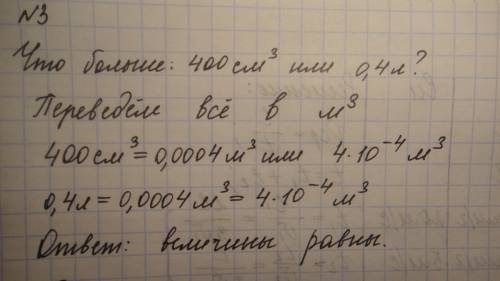 №3
Что больше: 400 см³ или 0,4 л?
Переведём всё в м³
400 см³ = 0,0004 м³ или 4·10⁻⁴ м³
0,4 л = 0,0004 м³ = 4·10⁻⁴ м³
Ответ: величины равны.